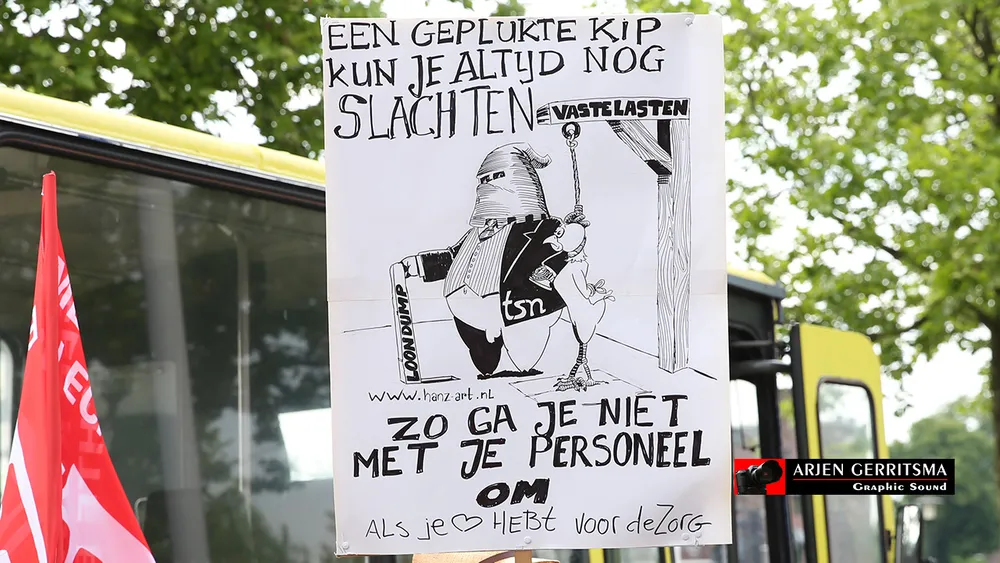 EEN GEPLUKTE KIP
KUN JE ALTIJD NOG
SLACHTEN
VASTELASTEN
LOONDUMP
tsn
www.hanz-art.nL
ZO GA JE NIET
MET JE PERSONEEL
OM
ALS je ♡ HEBt voor de Zorg
ARJEN GERRITSMA
Graphic Sound